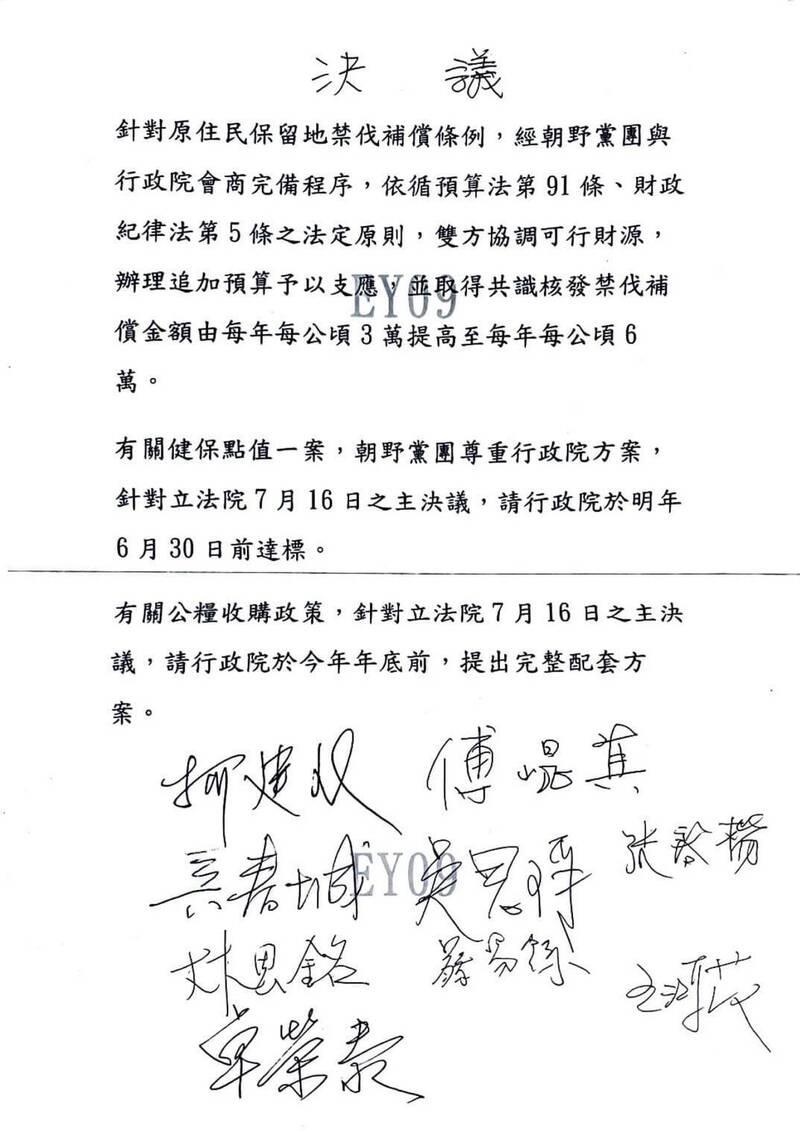 決議
針對原住民保留地禁伐補償條例，經朝野黨團與
行政院會商完備程序，依循預算法第91條、財政
紀律法第5條之法定原則，雙方協調可行財源，
辦理追加預算予以支應，並取得共識核發禁伐補
償金額由每年每公頃3萬提高至每年每公頃6
萬。
有關健保點值一案，朝野黨團尊重行政院方案，
針對立法院7月16日之主決議，請行政院於明年
6月30日前達標。
有關公糧收購政策，針對立法院7月16日之主決
議，請行政院於今年年底前，提出完整配套方
案。
EY09
柯建銘 傅崐萁
吳春城 EY09 吳思瑤 張啓楷
林思銘
卓榮泰